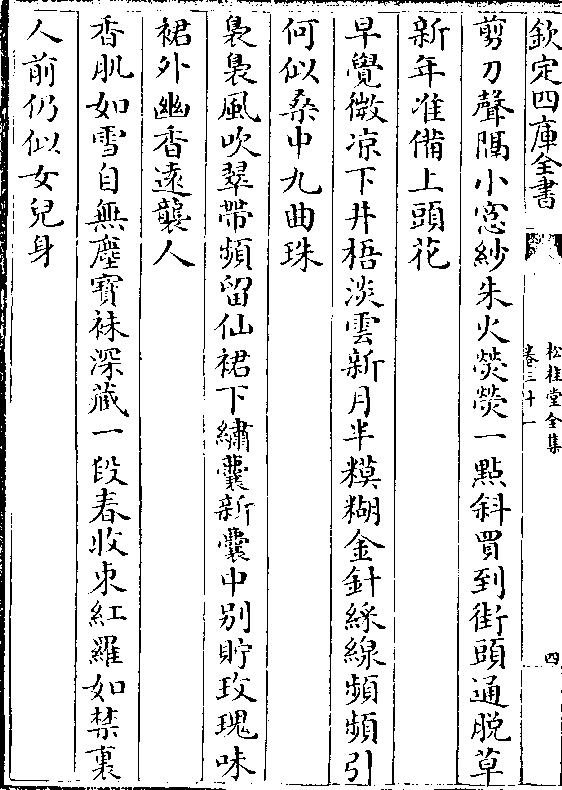 欽定四庫全書
松桂堂全集
卷三十一
四
剪刀聲隔小窓紗朱火熒熒一點斜買到街頭通脱草
新年准備上頭花
早覺微凉下井梧淡雲新月半糢糊金針綵線頻頻引
何似桑中九曲珠
裊裊風吹翠帶頻留仙裙下繡囊新囊中别貯玫瑰味
裙外幽香逺襲人
香肌如雪自無塵寶袜深藏一段春收束紅羅如禁裏
人前仍似女兒身